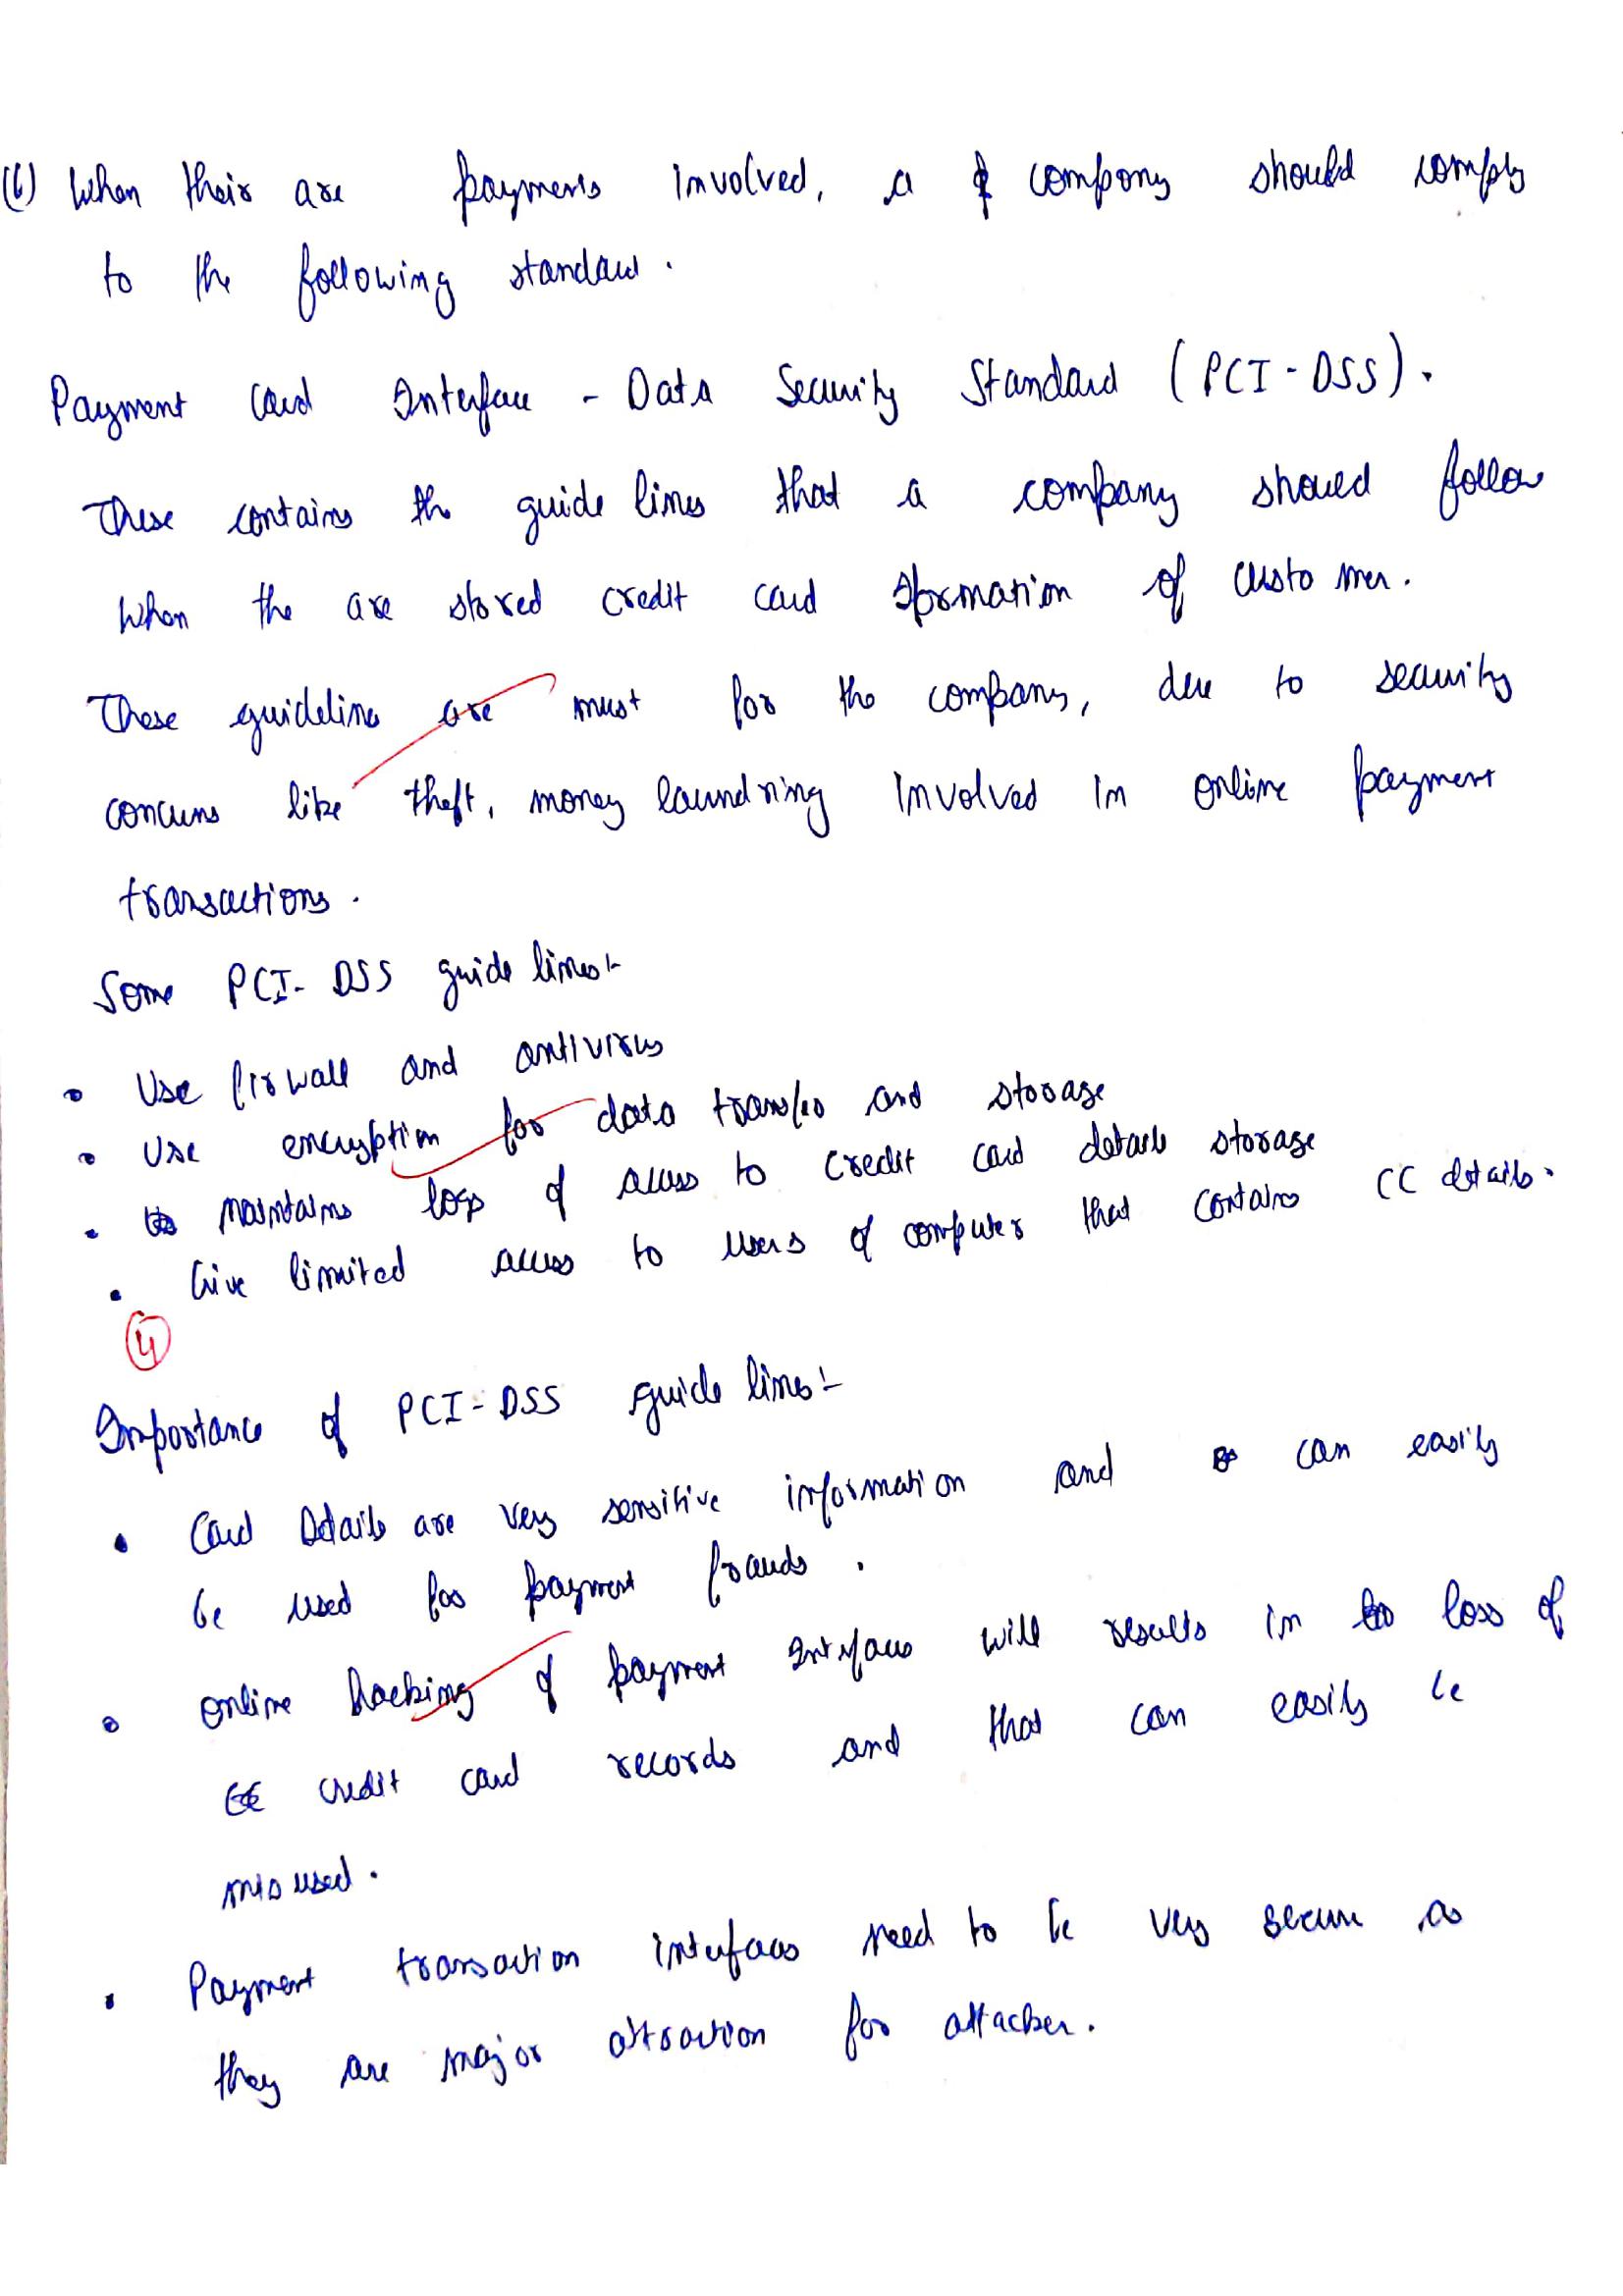 (6) When their are payments involved, a company should comply
to the following standard.
Payment Card Interface - Data Security Standard (PCI-DSS).
These contains the guide lines that a company should follow
when the are stored credit card Iformation of customer.
These guideline are must for the company, due to security
concerns like theft, money laundring involved in online payment
transactions.
Some PCI-DSS guide lines:-
• Use firwall and antivirus
• Use encryption for data transfer and storage
• Maintains logs of access to credit card details storage
• Give limited access to users of computer that contains CC details.
4
Importance of PCI-DSS guide lines:-
• Card Details are very sensitive information and can easily
be used for payment frauds.
• Online hacking of payment Interfaces will results in loss of
credit card records and that can easily be
misused.
• Payment transaction interfaces need to be very secure as
they are major attraction for attacker.